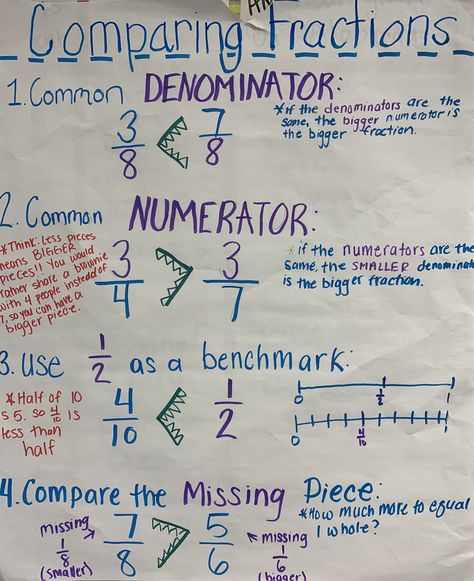 Comparing Fractions
1. Common DENOMINATOR:
3/8 < 7/8
*if the denominators are the
same, the bigger numerator is
the bigger fraction.
2. Common NUMERATOR:
*Think: Less pieces
means BIGGER
pieces!! You would
rather share a brownie
with 4 people instead of
7, so you can have a
bigger piece.
3/4 > 3/7
*if the numerators are the
same, the SMALLER denominat
is the bigger fraction.
3. Use 1/2 as a benchmark:
*Half of 10
is 5. so 4/10 is
less than
half
4/10 < 1/2
0 1/2 1
0 4/10 1
4. Compare the Missing Piece:
*How much more to equal
1 whole?
missing
1/8
(smaller)
7/8 > 5/6
missing
1/6
(bigger)